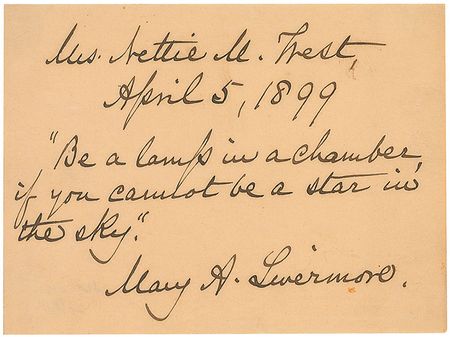 Mrs. Nettie M. West,
April 5, 1899
"Be a lamp in a chamber,
if you cannot be a star in
the sky."
Mary A. Livermore.